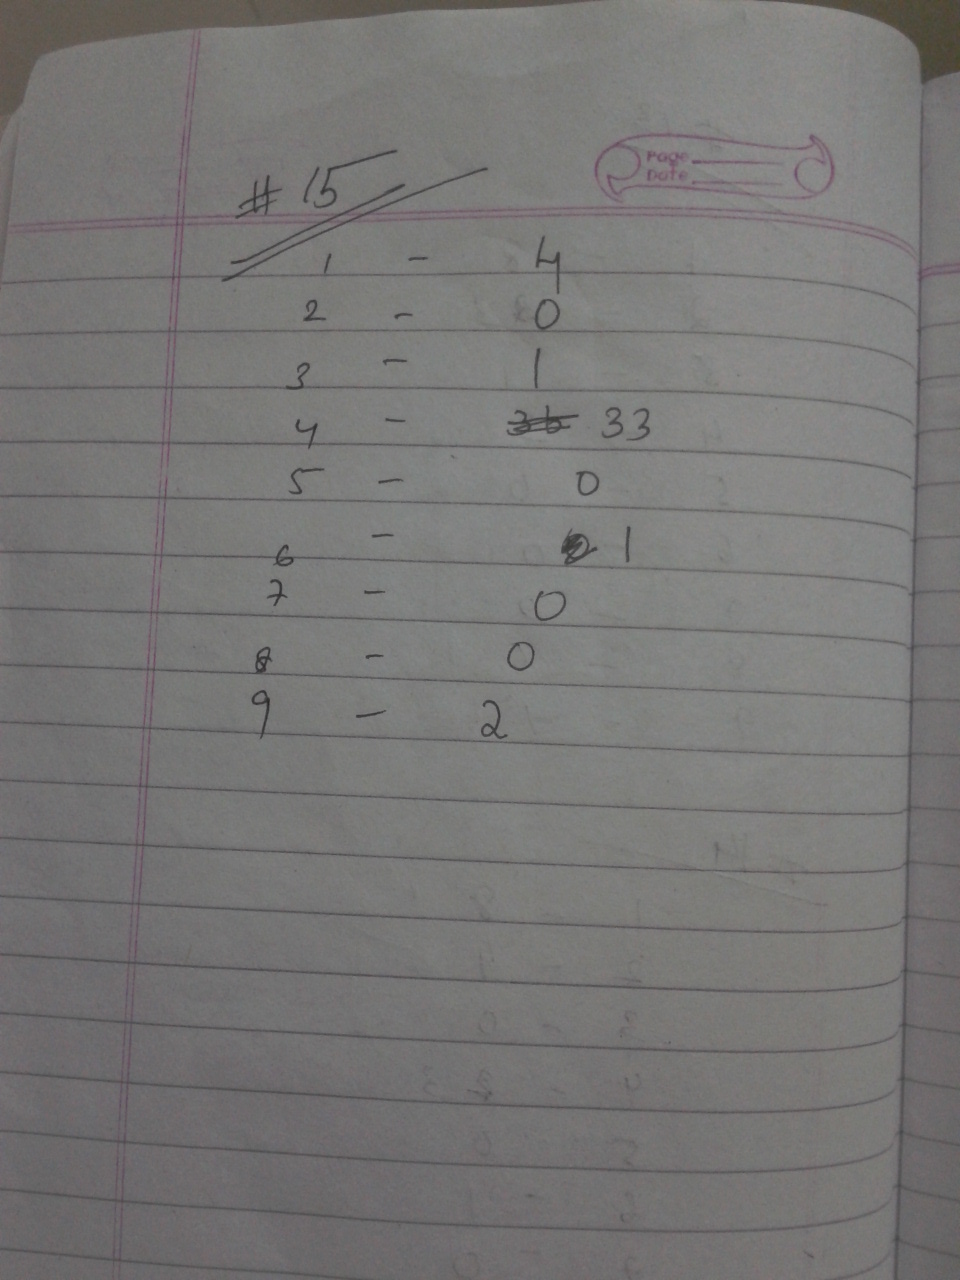 Page
Date
# 15
1 - 4
2 - 0
3 - 1
4 - 33
5 - 0
6 - 1
7 - 0
8 - 0
9 - 2